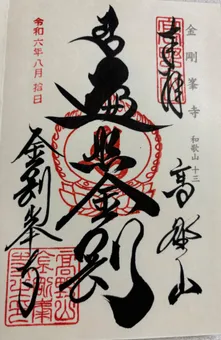 金剛峯寺
和歌山 十三
奉拝
高野山
遍照金剛
金剛峯寺
令和六年八月拾日
高野山
金剛峯
寺之印